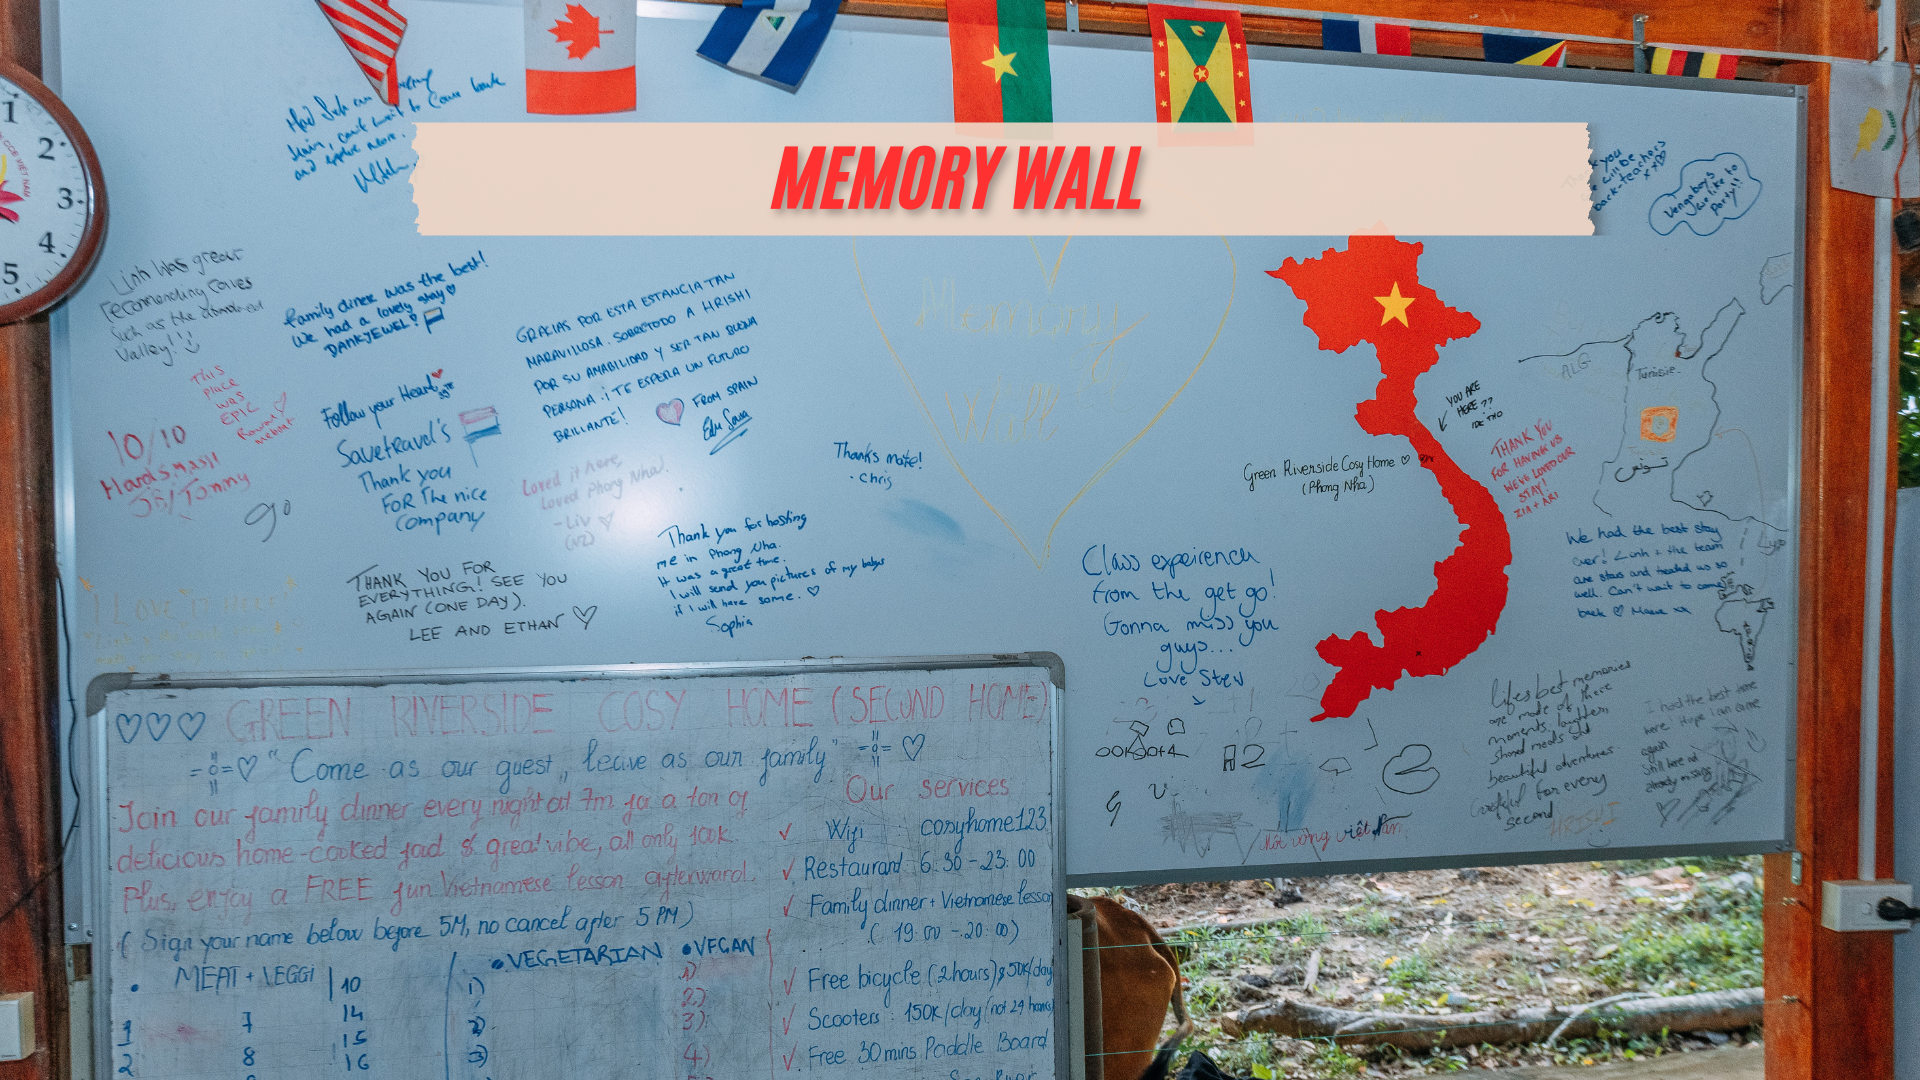 MEMORY WALL
and
Linh was great
recomending caves
such as the abandoned
Valley!!
This
place
was
EPIC
10/10
family diner was the best!
we had a lovely stay
DANKJEWEL!
Follow your Heart
Savetravel's
Thank you
FOR The nice
Company
GRACIAS POR ESTA ESTANCIA TAN
MARAVILLOSA. SOBRETODO A HRISHI
POR SU AMABILIDAD Y SER TAN BUENA
PERSONA ¡TE ESPERA UN FUTURO
BRILLANTE!
FROM SPAIN
Loved it here,
Loved Phong Nha!
-Liv
(NZ)
go
THANK YOU FOR
EVERYTHING! SEE YOU
AGAIN (ONE DAY).
LEE AND ETHAN
Thank you for hosting
me in Phong Nha.
It was a great time.
I will send you pictures of my babys
if I will have some.
Sophia
Thanks mate!
- Chris
Memory
Wall
I LOVE IT HERE!
Vengaboys
we like to
party!!
YOU ARE
HERE??
Green Riverside Cosy Home
(Phong Nha)
THANK YOU
FOR HAVING US
WE'VE LOVED OUR
STAY!
ZIA + ARI
ALG
Tunisie
تونس
We had the best stay
ever! Linh + the team
are stars and treated us so
well. Can't wait to come
back
Class expeirench
from the get go!
Gonna miss you
guys...
Love Stew
Lifes best memories
are made of there
moments, laughters
shared meals and
beautiful adventures
for every
second
HRISHI
I had the best time
here! Hope I can come
again
Still here and
already missing
A2
Môt vòng việt Nam
GREEN RIVERSIDE COSY HOME (SECOND HOME)
"Come as our guest, leave as our family"
Join our family dinner every night at 7m for a ton of
delicious home-cooked food & great vibe, all only 100k.
Plus, enjoy a FREE fun Vietnamese lesson afterward.
(Sign your name below before 5M, no cancel after 5 PM)
MEAT + VEGGI
10
• VEGETARIAN
• VEGAN
1
7
14
1)
1)
2
8
15
2)
2)
16
3)
3)
4)
Our services
✓ Wifi cosyhome123
✓ Restaurant 6:30 - 23:00
✓ Family dinner + Vietnamese lesson
(19:00 - 20:00)
✓ Free bicycle (2hours) & 50k/day
✓ Scooters: 150k/day (not 24 hours)
✓ Free 30 mins Paddle Board
1
2
3
4
5